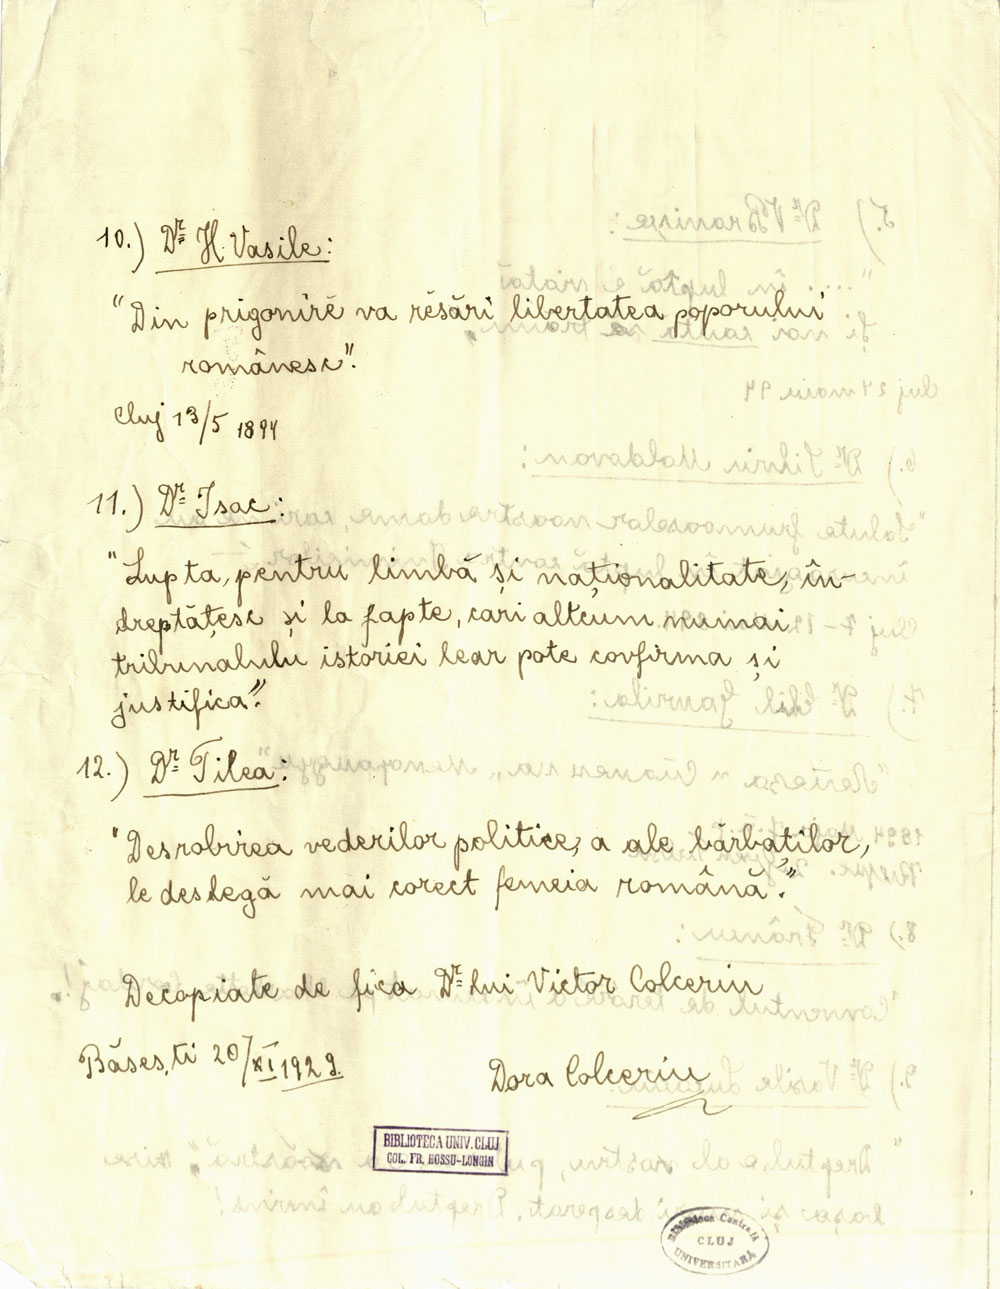 10.) Dr H. Vasile:
"Din prigonirĕ va rĕsări libertatea poporului
românesc".
Cluj 13/5 1894
11.) Dr Isac:
"Lupta, pentru limbă și naționalitate, în-
dreptățesc și la fapte, cari altcum numai
tribunalulu istoriei lear pote confirma și
justifica".
12.) Dr Tilea:
"Desrobirea vederilor politice, a ale bărbatilor,
le deslegă mai corect femeia română."
Decopiate de fica Dr lui Victor Colceriu
Băsești 20/XI 1929.
Dora Colceriu
BIBLIOTECA UNIV. CLUJ
COL. FR. HOSSU-LONGIN
Biblioteca Centrală
CLUJ
UNIVERSITARĂ